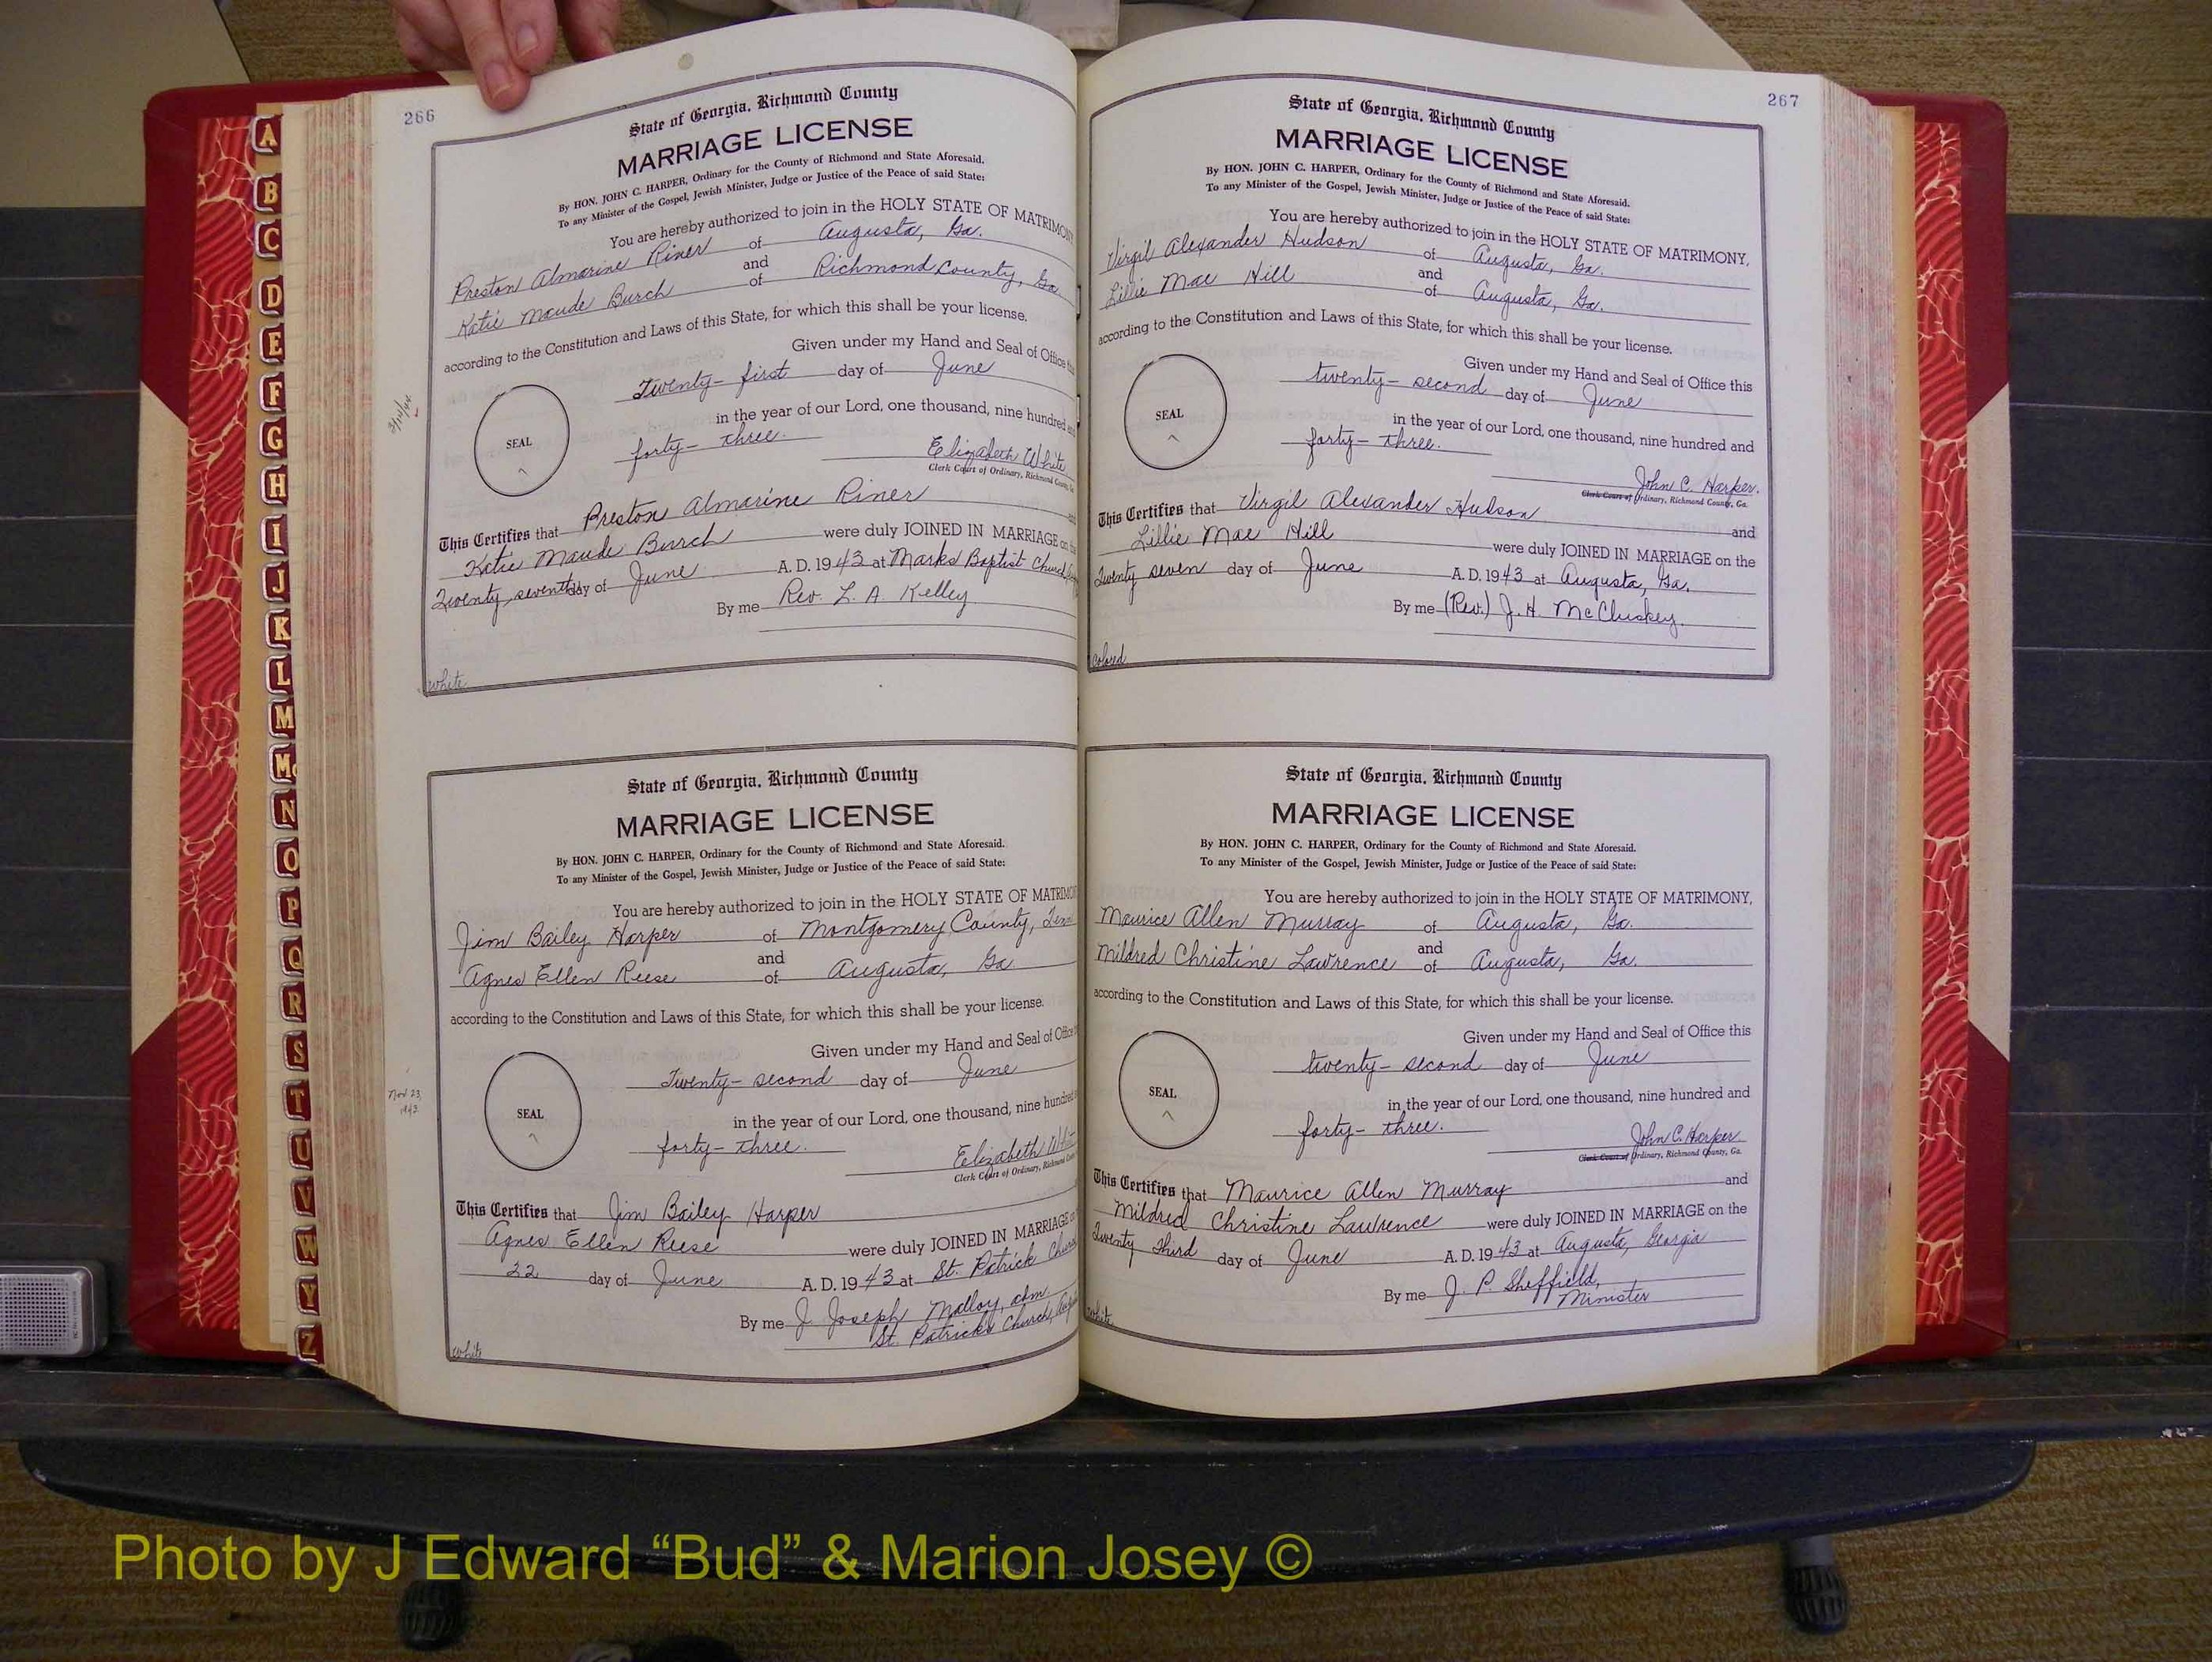 266
State of Georgia, Richmond County
MARRIAGE LICENSE
By HON. JOHN C. HARPER, Ordinary for the County of Richmond and State Aforesaid.
To any Minister of the Gospel, Jewish Minister, Judge or Justice of the Peace of said State:
You are hereby authorized to join in the HOLY STATE OF MATRIMONY
Preston Almarine Riner of Augusta, Ga.
and
Katie Maude Burch of Richmond County, Ga
according to the Constitution and Laws of this State, for which this shall be your license.
Given under my Hand and Seal of Office
Twenty-first day of June
in the year of our Lord, one thousand, nine hundred
forty-three.
SEAL
Elizabeth White
Clerk Court of Ordinary, Richmond County, Ga
This Certifies that Preston Almarine Riner
Katie Maude Burch were duly JOINED IN MARRIAGE on
Twenty seventh day of June A. D. 1943 at Marks Baptist Church
By me Rev. L. A. Kelley
white
State of Georgia, Richmond County
MARRIAGE LICENSE
By HON. JOHN C. HARPER, Ordinary for the County of Richmond and State Aforesaid.
To any Minister of the Gospel, Jewish Minister, Judge or Justice of the Peace of said State:
You are hereby authorized to join in the HOLY STATE OF MATRIMO
Jim Bailey Harper of Montgomery County,
and
Agnes Ellen Reese of Augusta, Ga
according to the Constitution and Laws of this State, for which this shall be your license.
Given under my Hand and Seal of Office
Twenty-second day of June
in the year of our Lord, one thousand, nine hundred
forty-three.
SEAL
Nov 23,
1943
Elizabeth Whi
Clerk Court of Ordinary, Richmond
This Certifies that Jim Bailey Harper
Agnes Ellen Reese were duly JOINED IN MARRIAGE
22 day of June A. D. 1943 at St. Patrick Church
By me J Joseph Malloy, adm.
St. Patricks Church,
white
267
State of Georgia, Richmond County
MARRIAGE LICENSE
By HON. JOHN C. HARPER, Ordinary for the County of Richmond and State Aforesaid.
To any Minister of the Gospel, Jewish Minister, Judge or Justice of the Peace of said State:
You are hereby authorized to join in the HOLY STATE OF MATRIMONY,
Virgil Alexander Hudson of Augusta, Ga.
and
Lillie Mae Hill of Augusta, Ga.
according to the Constitution and Laws of this State, for which this shall be your license.
Given under my Hand and Seal of Office this
twenty-second day of June
in the year of our Lord, one thousand, nine hundred and
forty-three.
SEAL
John C. Harper.
Clerk Court of Ordinary, Richmond County, Ga.
This Certifies that Virgil Alexander Hudson
and
Lillie Mae Hill were duly JOINED IN MARRIAGE on the
Twenty seven day of June A. D. 1943 at Augusta, Ga.
By me (Rev.) J. H. McCluskey.
colored
State of Georgia, Richmond County
MARRIAGE LICENSE
By HON. JOHN C. HARPER, Ordinary for the County of Richmond and State Aforesaid.
To any Minister of the Gospel, Jewish Minister, Judge or Justice of the Peace of said State:
You are hereby authorized to join in the HOLY STATE OF MATRIMONY,
Maurice Allen Murray of Augusta, Ga.
and
Mildred Christine Lawrence of Augusta, Ga.
according to the Constitution and Laws of this State, for which this shall be your license.
Given under my Hand and Seal of Office this
twenty-second day of June
in the year of our Lord, one thousand, nine hundred and
forty-three.
SEAL
John C. Harper
Clerk Court of Ordinary, Richmond County, Ga.
This Certifies that Maurice Allen Murray and
Mildred Christine Lawrence were duly JOINED IN MARRIAGE on the
Twenty Third day of June A. D. 1943 at Augusta, Georgia
By me J. P. Sheffield,
Minister
white
A
B
C
D
E
F
G
H
I
J
K
L
M
Mc
N
O
P
Q
R
S
T
U
V
W
Y
Z
Photo by J Edward “Bud” & Marion Josey ©